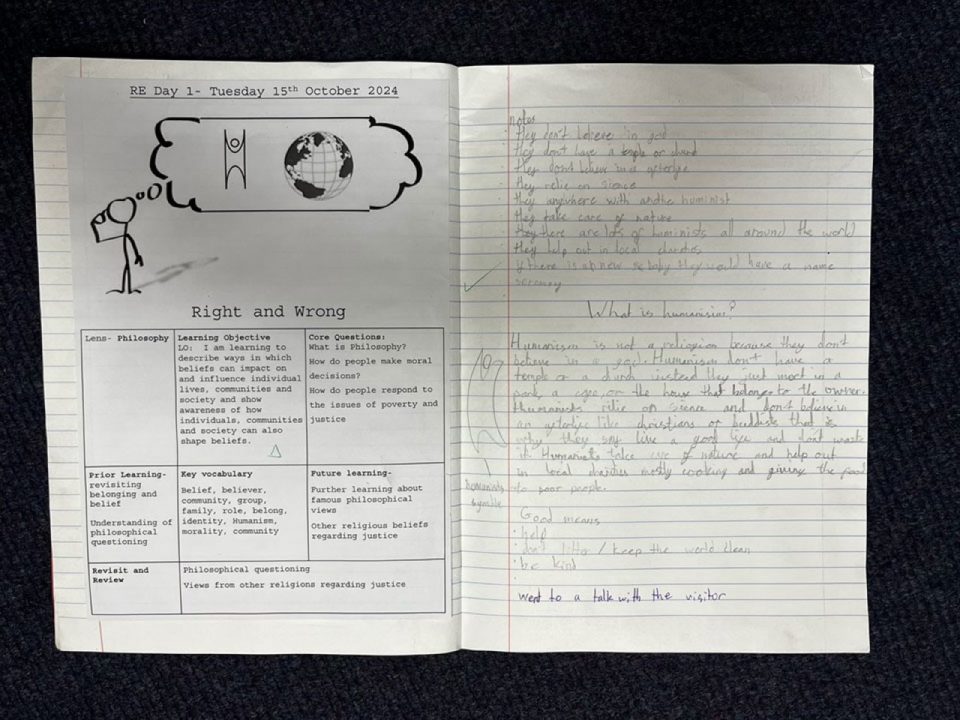 RE Day 1- Tuesday 15th October 2024
Right and Wrong
Lens- Philosophy
Learning Objective
LO: I am learning to
describe ways in which
beliefs can impact on
and influence individual
lives, communities and
society and show
awareness of how
individuals, communities
and society can also
shape beliefs.
Core Questions:
What is Philosophy?
How do people make moral
decisions?
How do people respond to
the issues of poverty and
justice
Prior Learning-
revisiting
belonging and
belief
Understanding of
philosophical
questioning
Key vocabulary
Belief, believer,
community, group,
family, role, belong,
identity, Humanism,
morality, community
Future learning-
Further learning about
famous philosophical
views
Other religious beliefs
regarding justice
Revisit and
Review
Philosophical questioning
Views from other religions regarding justice
notes
they don't believe in god
they don't have a temple or
they don't in a
they rely on sience
they anywhere with huministe
they take care of nature
there are lots of huminists all around the world
they help out in local
if there is new baby they would have a name
What is humanisim?
Humanism is not a religion because they don't
believe in a god. Humanism don't have a
temple or a instead they just meet in a
park, a cafe, or the house that belongs to the owner.
relie on sience and don't believe in
an like christians or that is
why they live a good life and don't waste
it. take care of nature and help out
in local mostly cooking and giving the food
to poor people.
Good means
· help
· don't litter / keep the world clean
· be kind
went to a talk with the visitor